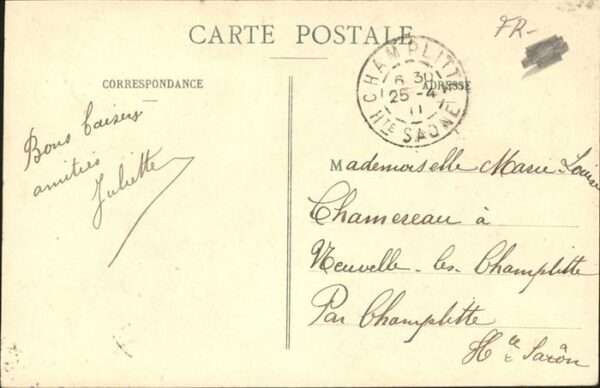 CARTE POSTALE
FR-
CORRESPONDANCE
ADRESSE
CHAMPLITTE
6 30
25-4
11
HTE SAÔNE
Bons baisers
amitiés
Juliette
Mademoiselle Marie-Louise
Chamereau à
Neuvelle-les-Champlitte
Par Champlitte
Hte Saôn